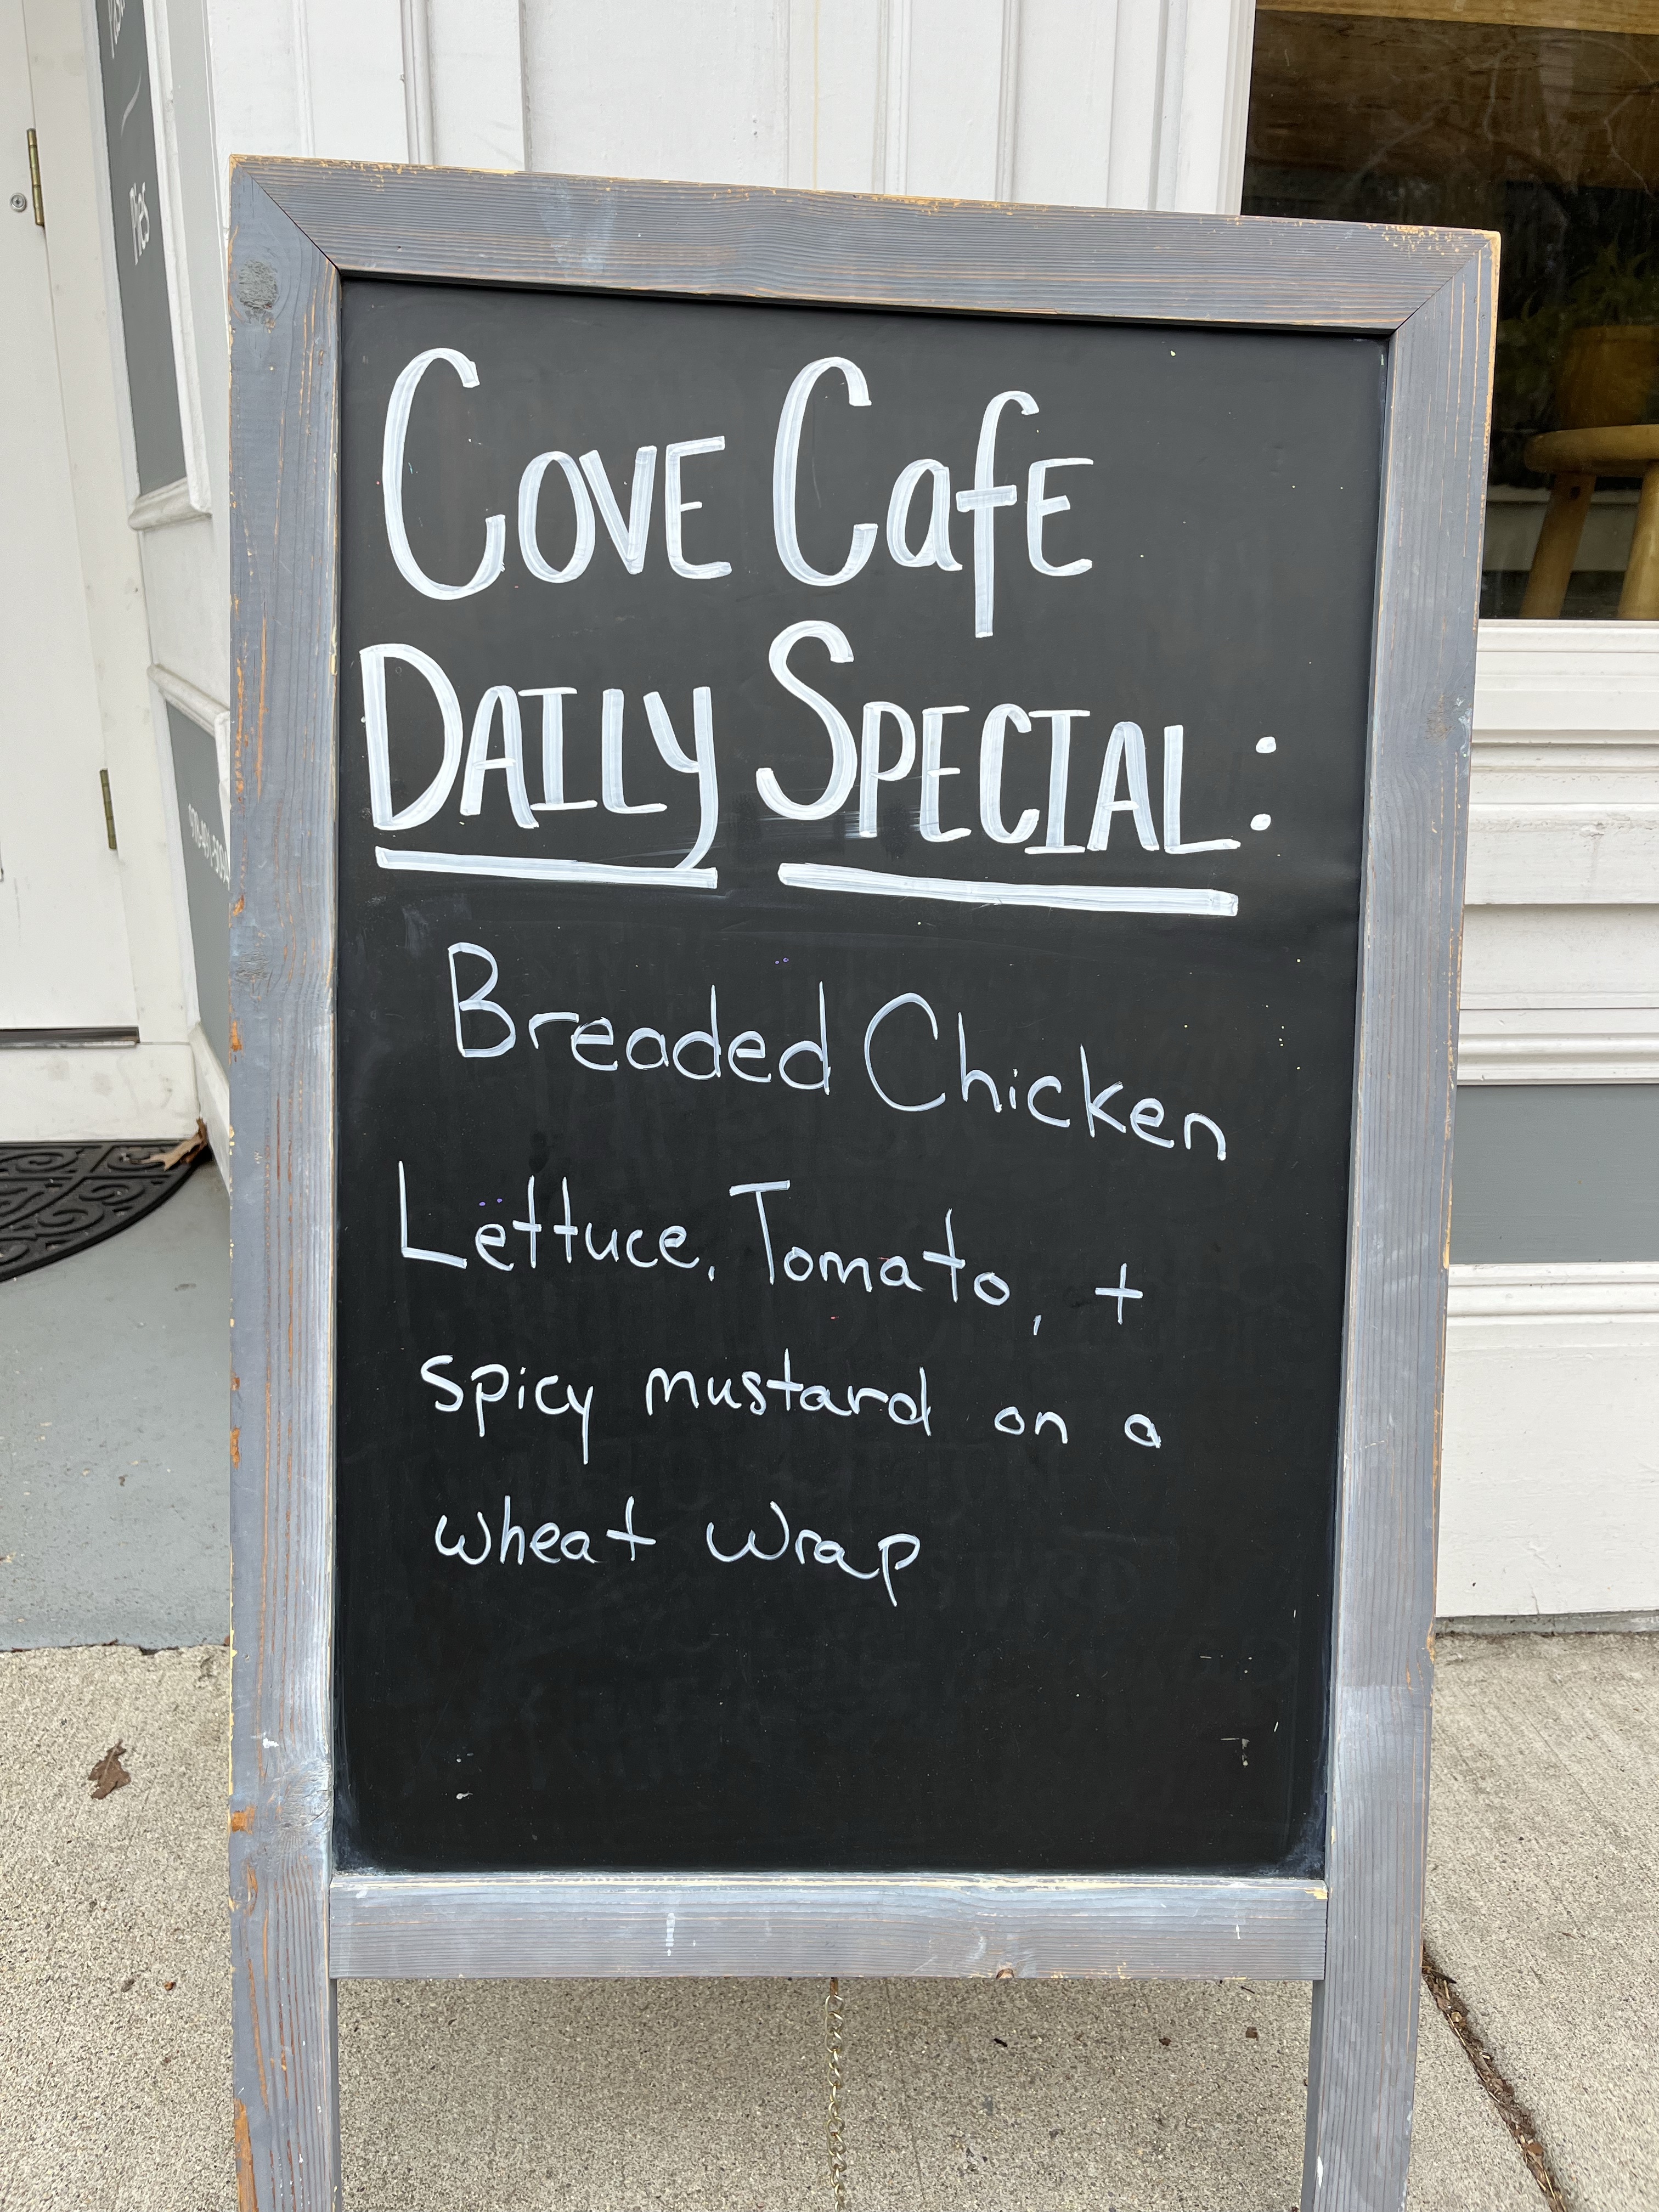 Pies
Cove Cafe
Daily Special:
Breaded Chicken
Lettuce, Tomato, +
spicy mustard on a
wheat wrap